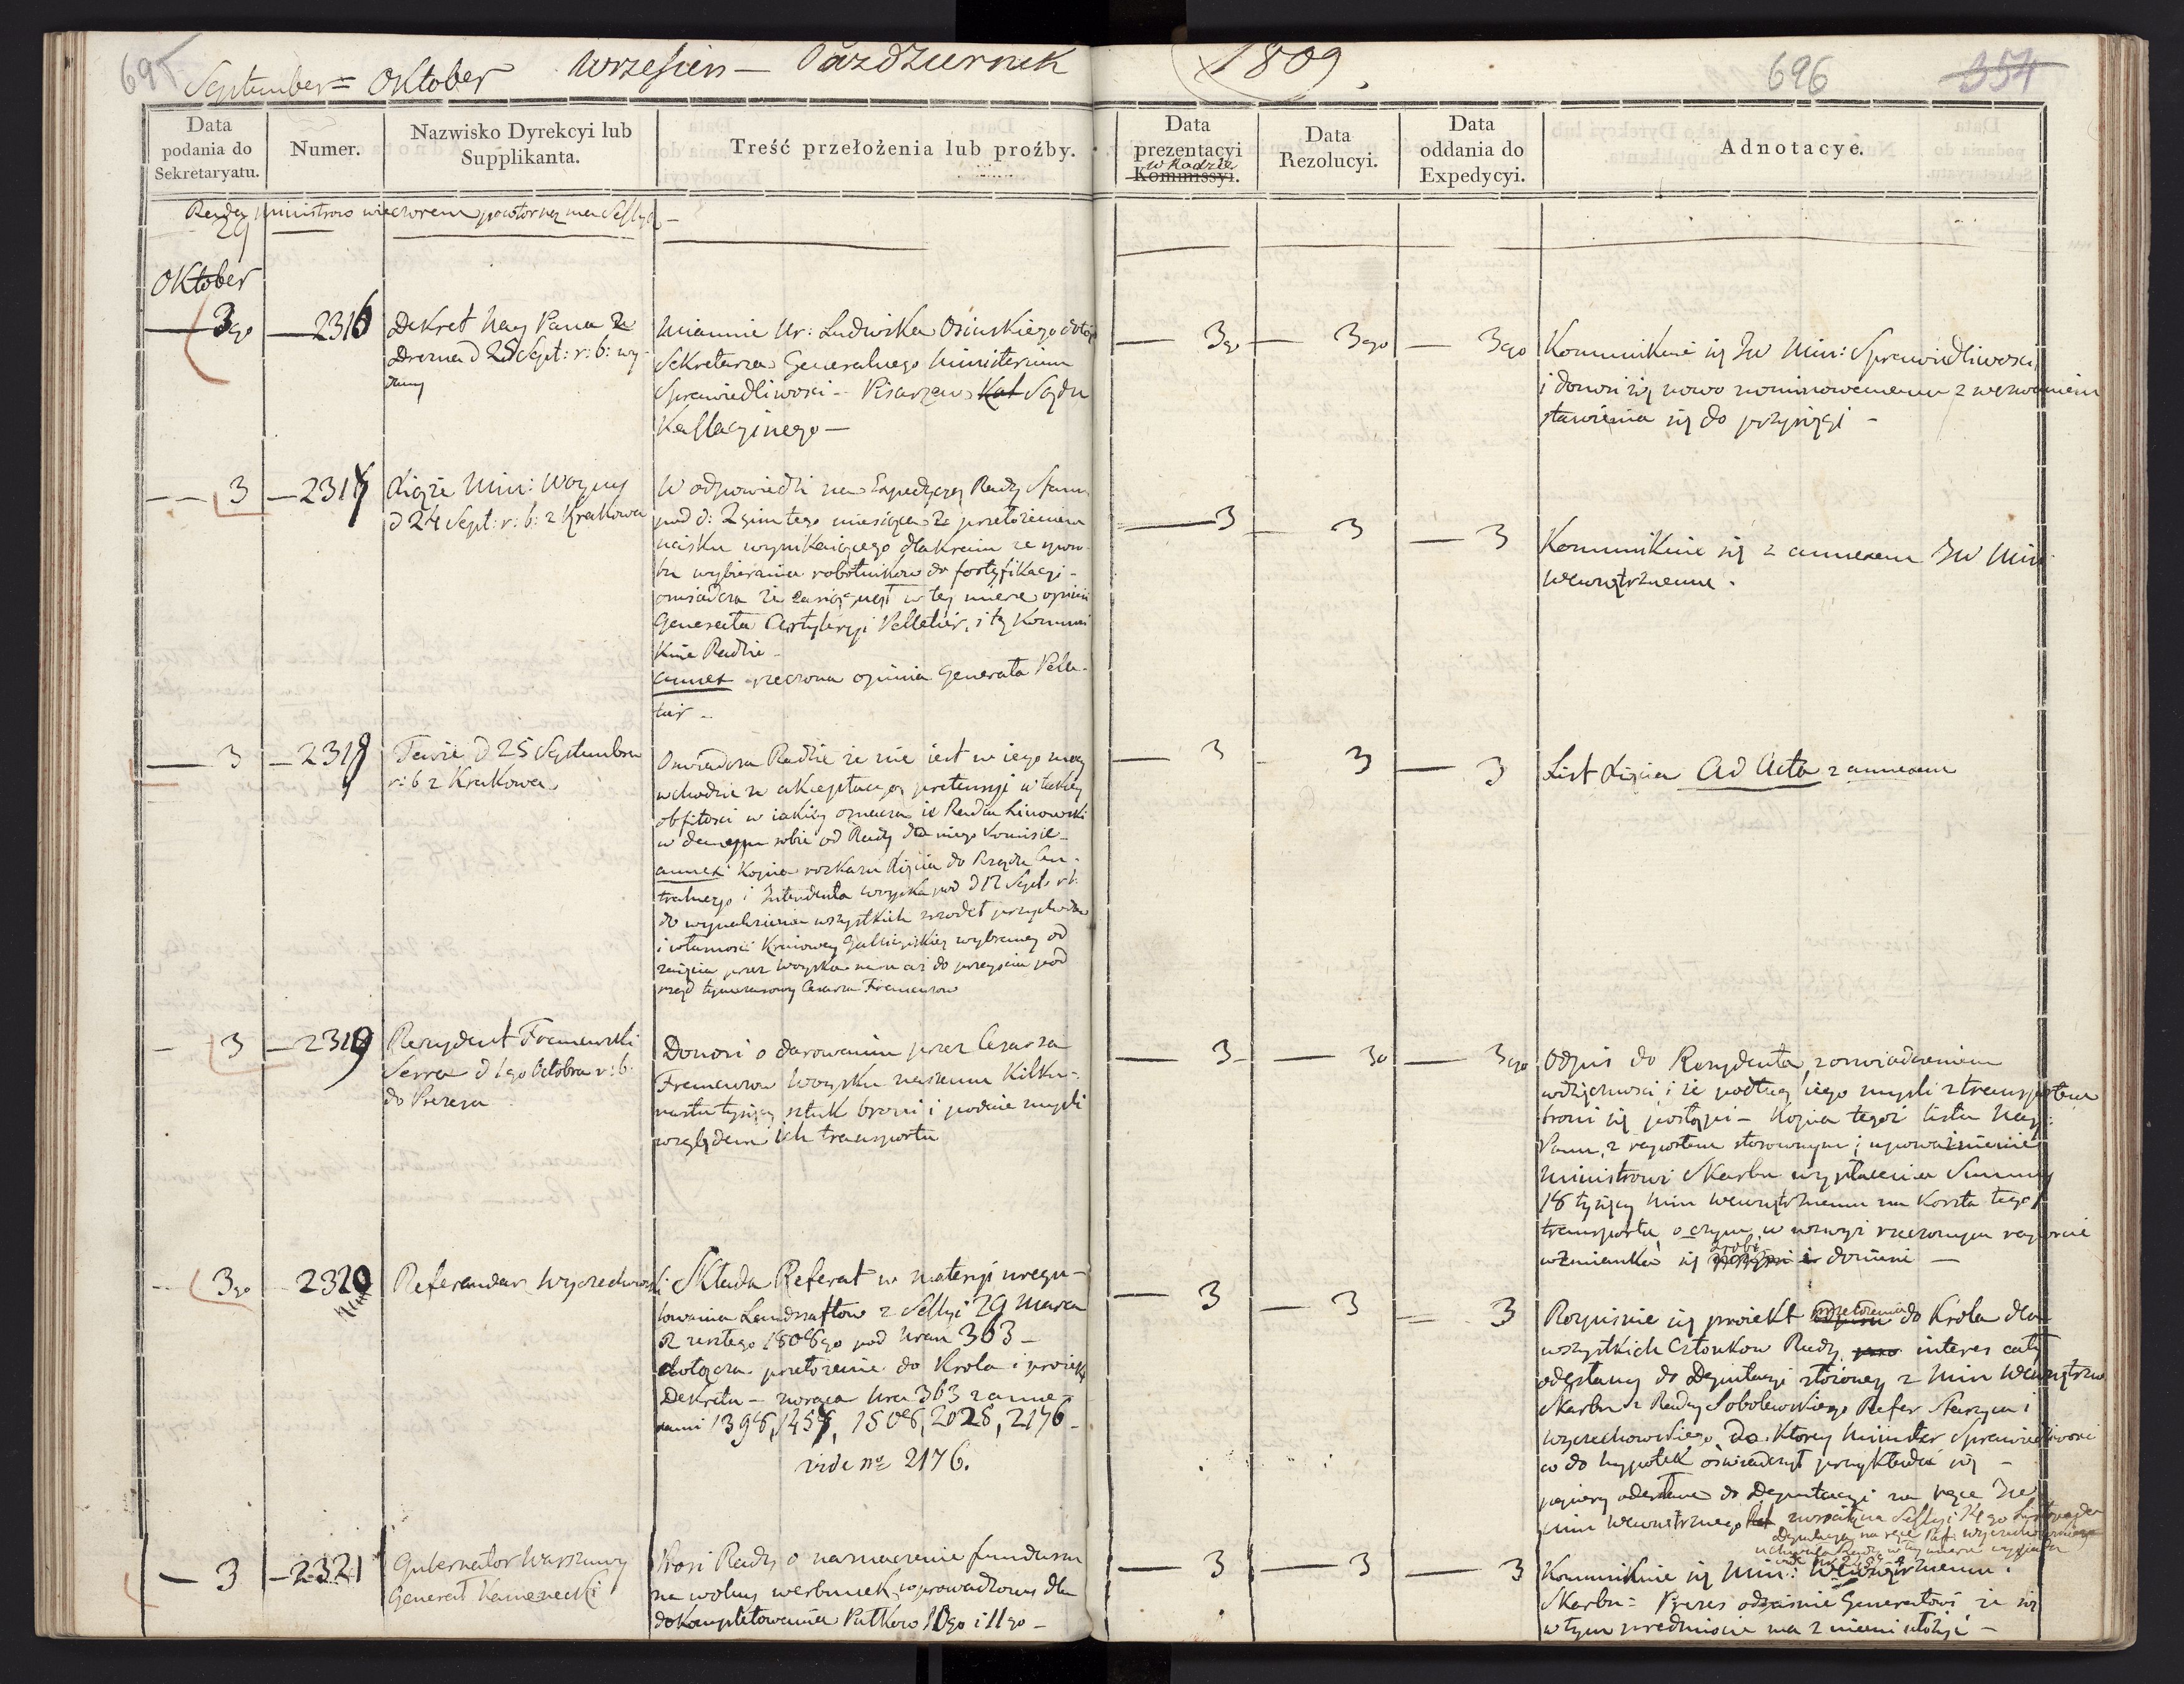 695
September = Oktober Wrzesień — Październik
1809.
696
354
Data podania do Sekretaryatu.
Numer.
Nazwisko Dyrekcyi lub Supplikanta.
Treść przełożenia lub proźby.
Data prezentacyi w Radzie Kommissyi.
Data Rezolucyi.
Data oddania do Expedycyi.
Adnotacye.
Rada Ministrow wieczorem powtorną ma Sessyą —
29
Oktober
3go — 2316
Dekret Nay Pana z
Drezna d 25 Sept: r: b: wy-
dany
Mianuie Ur: Ludwika Osinskiego dotąd
Sekretarza Generalnego Ministerium
Sprawiedliwosci - Pisarzem Kas Sądu
Kassacyinego —
— 3go — 3go — 3go
Kommunikuie się JW Min: Sprawiedliwosci
i donosi się nowo nominowanemu z wezwaniem
stawienia się do przysięgi -
— 3 — 2317
Xiąże Min: Woyny
d 24 Sept: r: b: z Krakowa
W odpowiedzi na Expedycyą Rady Stanu
pod d: 2gim tego miesiąca z przełożeniem
ucisku wynikaiącego dla kraiu ze sposo-
bu wybierania robotnikow do fortyfikacyi -
oswiadcza że zasiągnął w tey mierze opinii
Generała Artyleryi Pelletier, i tę Kommuni
kuie Radzie -
Annex rzeczona opinia Generała Pelle-
tier -
— 3 — 3 — 3
Kommunikuie się z annexem JW Min
Wewnętrznemu.
— 3 — 2318
Tenże d 25 Septembra
r: b z Krakowa
Oswiadcza Radzie że nie iest w iego mocy
wchodzić w akceptacyą pretensyi w takiey
obfitosci w iakiey oznacza ie Radca Linowski
w danym sobie od Rady dla niego Komisie -
Annex: Kopia rozkazu Xięcia do Rządu Cen-
tralnego i Intendenta Woyska pod d 17 Sept. r b.
do wynalezienia wszystkich zrodeł przychodow
i własnosci Kraiowey Galicyiskiey wybraney od
zaięcia przez Woyska nasze aż do przeyscia pod
rząd tymczasowy Cesarza Francuzow
— 3 — 3 — 3
List Xięcia Ad Acta z annexem
— 3 — 2319
Rezydent Francuzki
Serra d 1go Octobra r: b:
do Prezesa
Donosi o darowaniu przez Cesarza
Francuzow Woysku naszemu kilku-
nastu tysięcy sztuk broni i podaie mysli
względem ich transportu
— 3 — 3o — 3go
Odpis do Rezydenta, z oswiadczeniem
wdzięcznosci i że podług iego mysli z transportem
broni się postąpi - Kopia tegoż listu Nay:
Panu, z raportem stosownym; upoważnienie
Ministrowi Skarbu wypłacenia Summy
18 tysięcy Min Wewnętrznemu na koszta tego
transportu, o czym w rzeczonym raporcie
wzmianka się zrobi i doniesie —
— 3go — 2320
Referendarz Wyczechowski
Składa Referat w materyi uregu-
lowania Landszaftow z Sessyi 29 Marca
z roku 1808go pod Nrem 363 —
dołącza przełożenie do Krola i proiekt
Dekretu - zwraca Nra 363 z anne-
xami 1398, 1457, 1508, 2028, 2176 -
vide No 2176.
— 3 — 3 — 3
Rozpisuie się proiekt przełożenia odpisu do Krola dla
wszystkich Członkow Rady interes cały
odesłany do Deputacyi złożoney z Min Wewnętrzn
Skarbu z Radcy Sobolewskiego Refer Staszyca i
Wyczechowskiego, do ktorey Minister Sprawiedliwosci
co do hypotek oswiadczył przykładać się -
papiery odesłane do Deputacyi na ręce JW
Min Wewnętrznego zwrócił na Sessyi 14go Listopada
Deputacya na ręce Ref: Wyczechowskiego
uchwała Rady w tey mierze wypadła
— 3 — 2321
Gubernator Warszawy
Generał Kamienecki
Prosi Rady o naznaczenie funduszu
na wolny werbunek, wprowadzony dla
dokompletowania Pułkow 10go i 11go —
— 3 — 3 — 3
Kommunikuie się Min: Wewnętrznemu:
Skarbu - Prezes odpisuie Generałowi że się
w tym przedmiocie ma z niemi ułożyć -